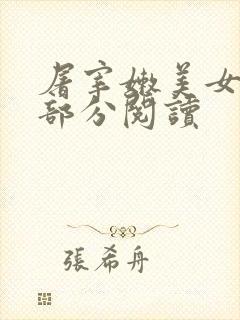 屠宰嫩美女
部分閱讀
張希舟